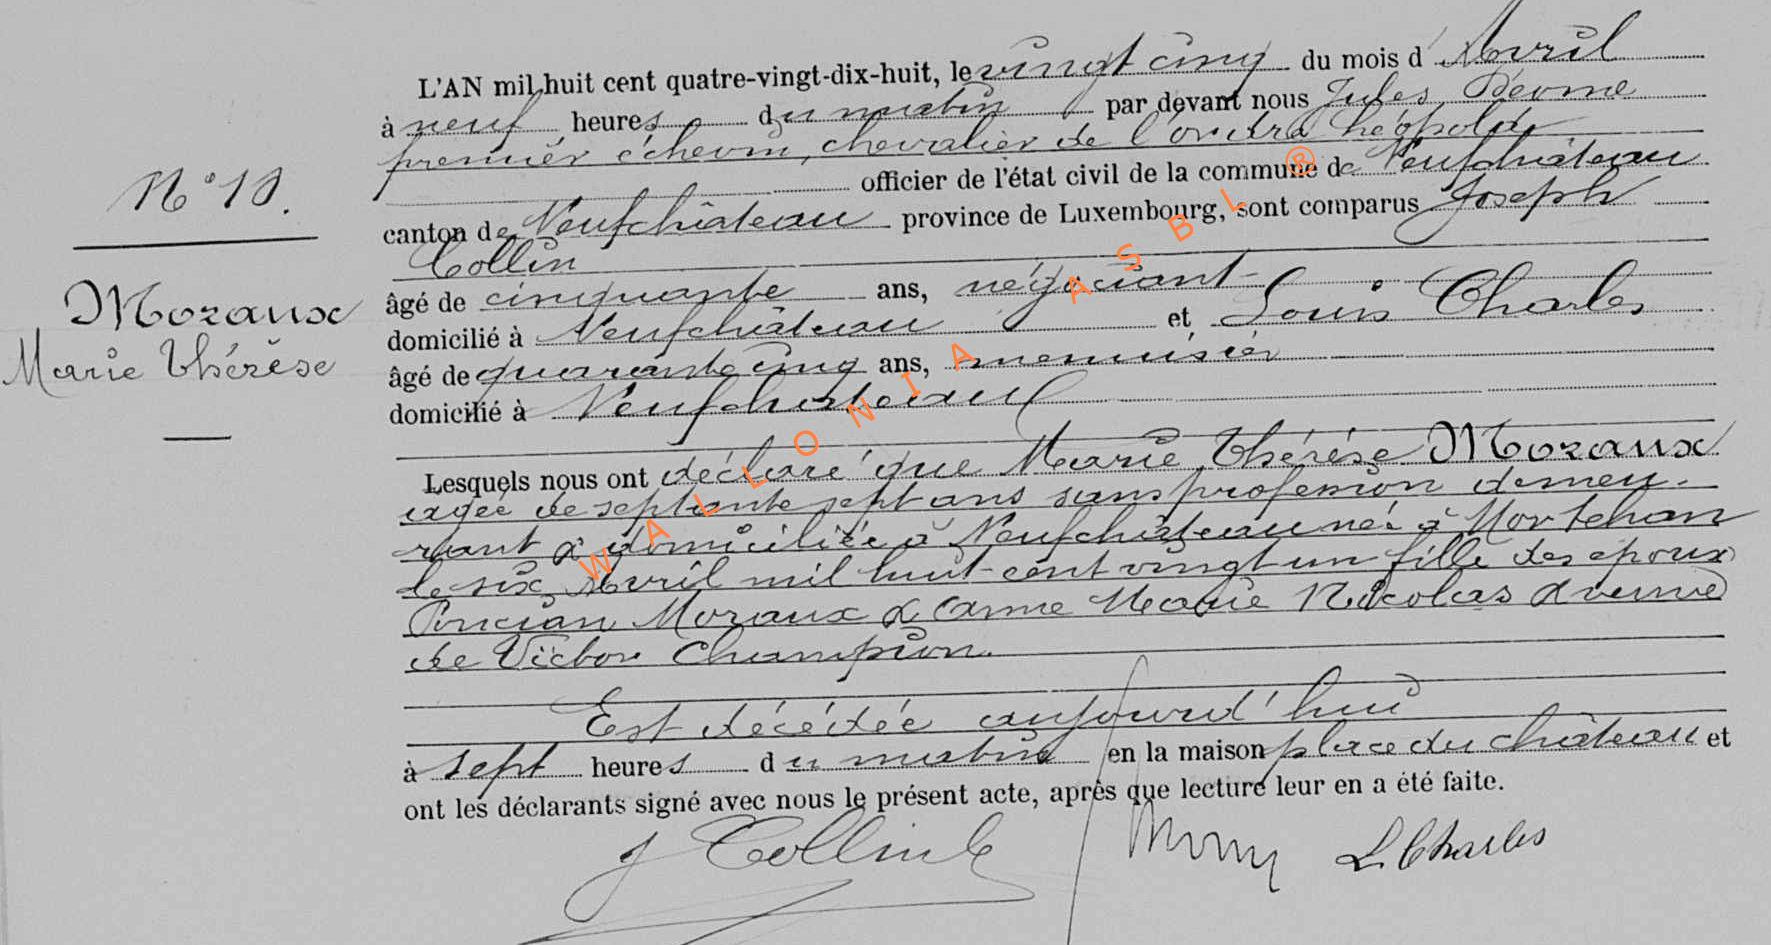 L'AN mil huit cent quatre-vingt-dix-huit, le vingt cinq du mois d'Avril
à neuf heures du matin par devant nous Jules
premier échevin, chevalier de l'ordre Léopold,
officier de l'état civil de la commune de Neufchâteau
canton de Neufchâteau province de Luxembourg, sont comparus Joseph
Collin
âgé de cinquante ans, négociant
domicilié à Neufchâteau et Louis Charles
âgé de quarante cinq ans, menuisier
domicilié à Neufchateau
N° 18.
Moraux
Marie Thérèse
Lesquels nous ont déclaré que Marie Thérèse Moraux
agée de septante sept ans sans profession demeu-
rant & domiciliée à Neufchâteau née à Mortehan
le six Avril mil huit cent vingt un fille des époux
Moraux & Anne Marie Nicolas & veuve
de Victor Champion.
Est décédée aujourd'hui
à sept heures du matin en la maison place du château et
ont les déclarants signé avec nous le présent acte, après que lecture leur en a été faite.
J Collin L. Charles
WALLONIA ASBL ®